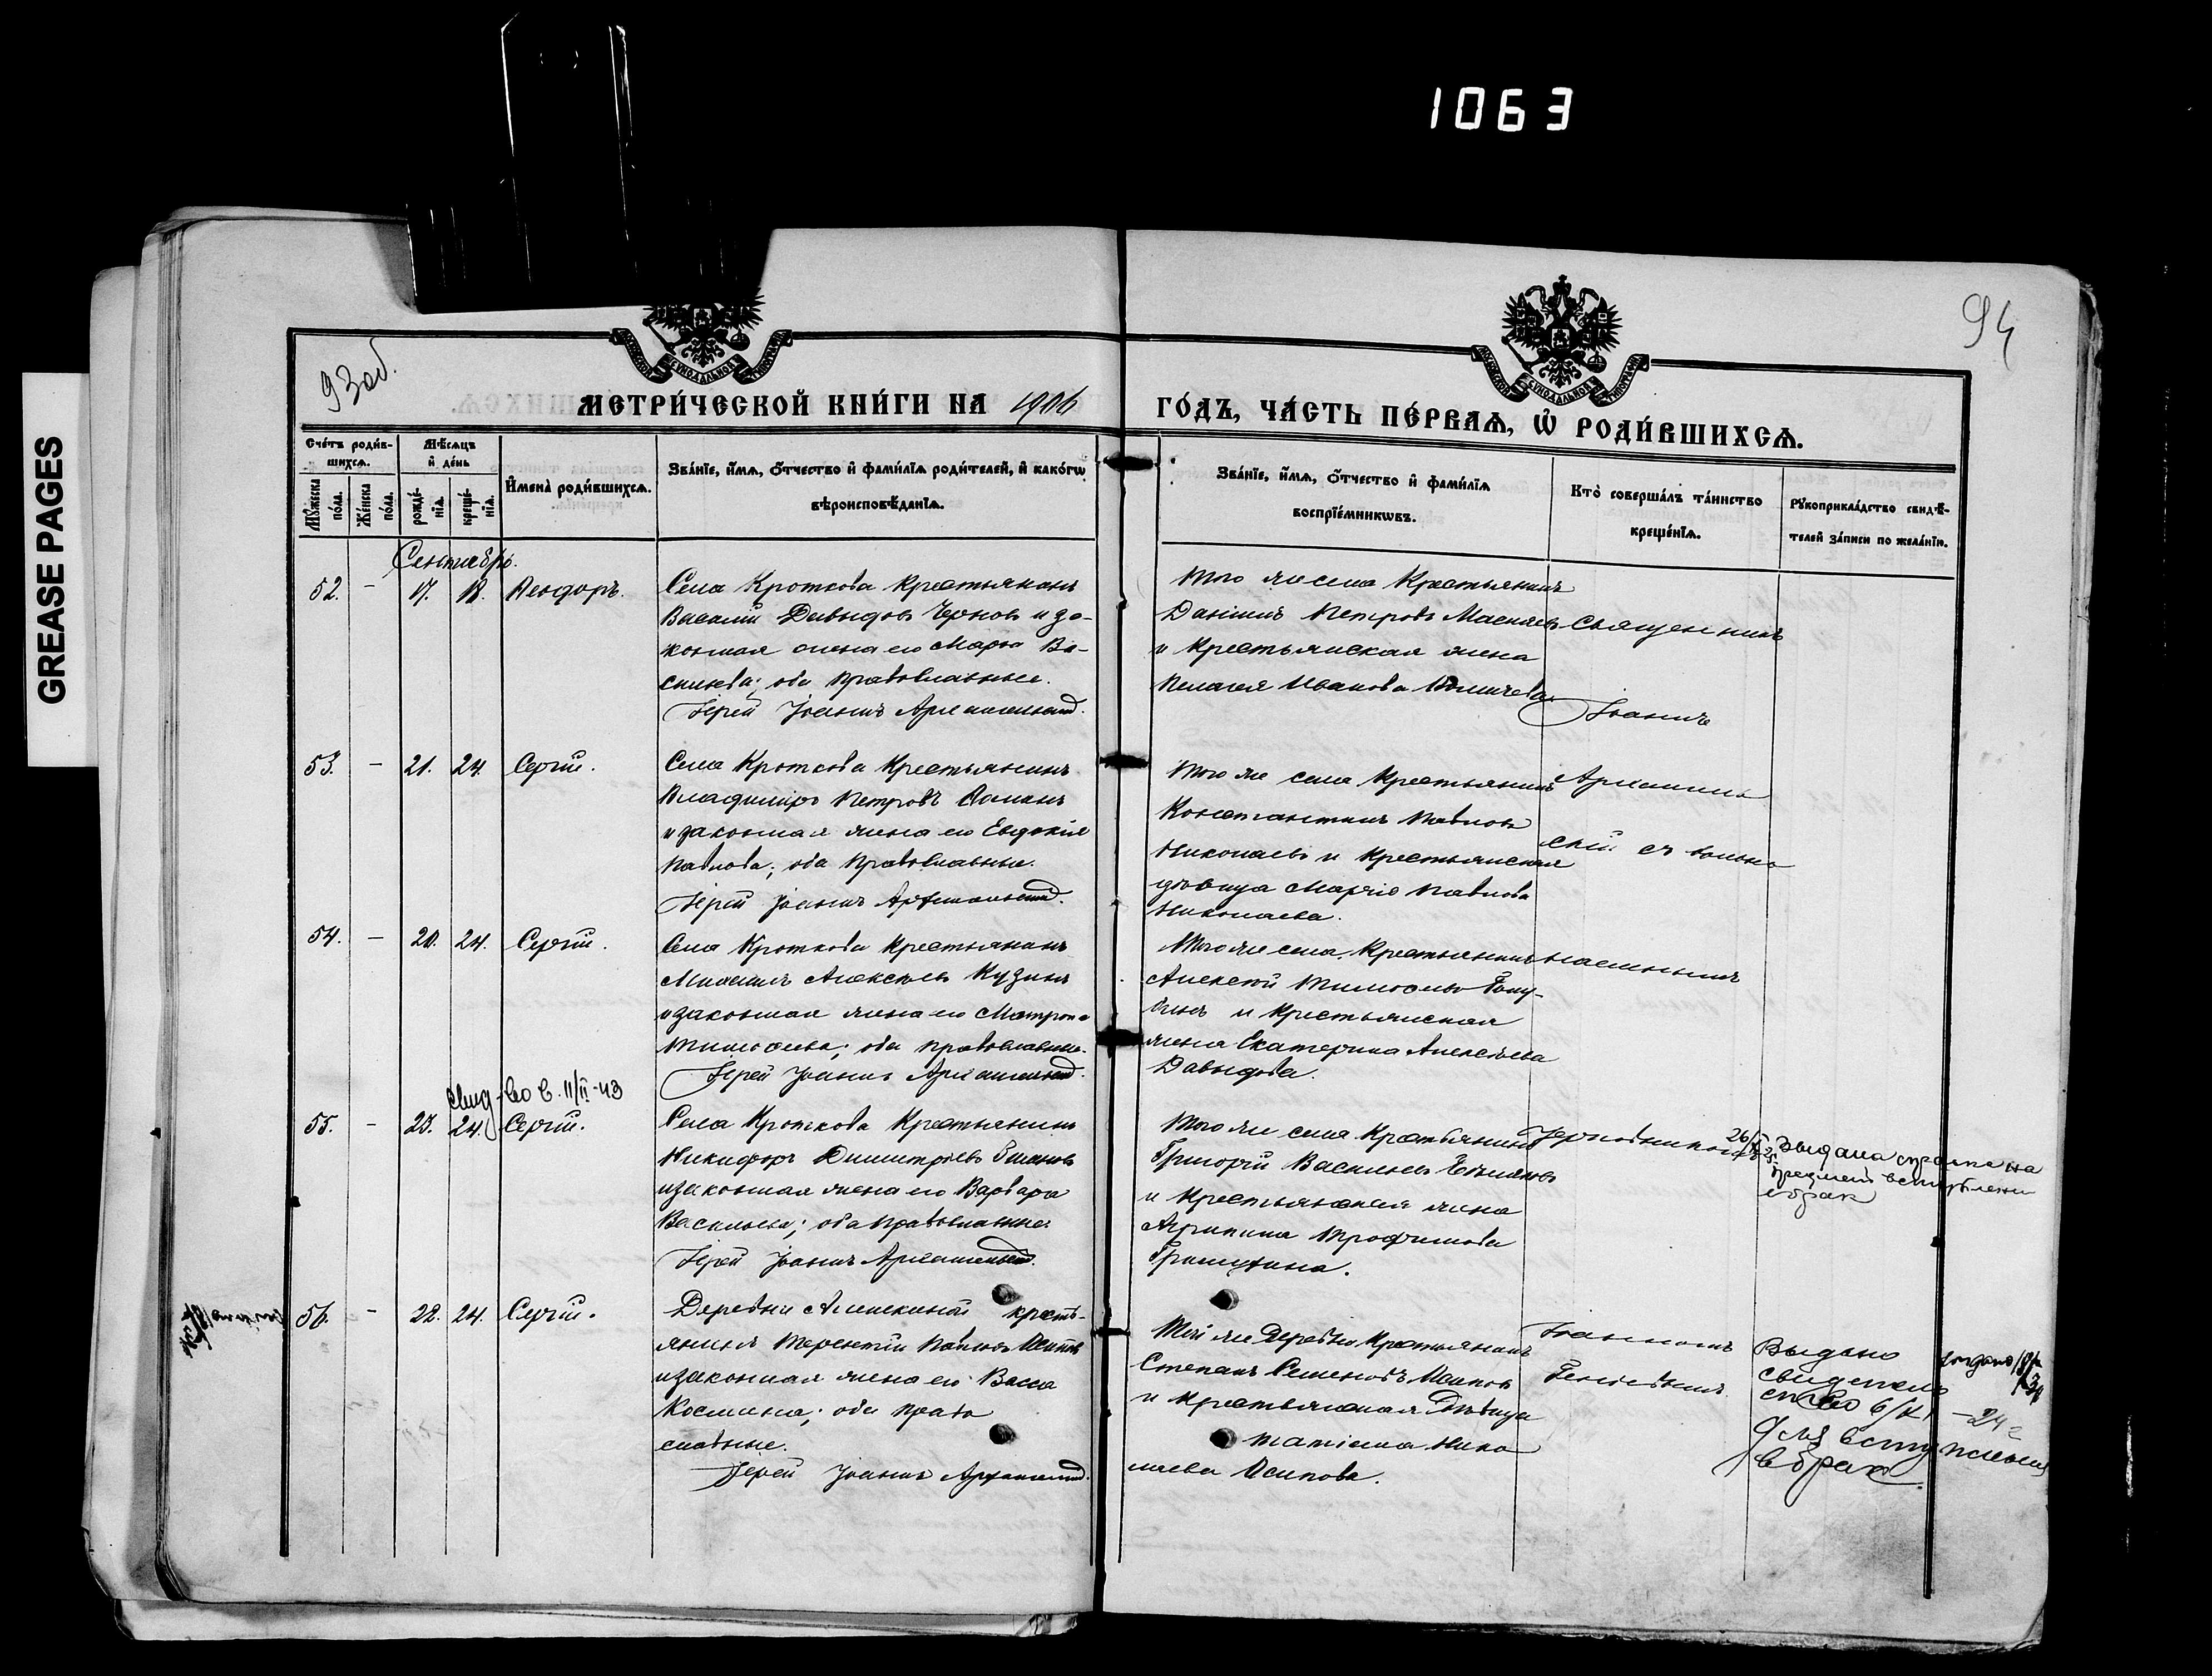 1063
GREASE PAGES
93 об.
94
МЕТРИ́ЧЕСКОЙ КНИ́ГИ НА 1906
ГО́ДЪ, ЧА́СТЬ ПЕ́РВАѦ, Ѡ҆ РОДИ́ВШИХСѦ.
Сче́тъ роди́в-
шихсѧ.
Мѣ́сѧцъ
и҆ де́нь
И҆мена̀ роди́вшихсѧ.
Зва́нїе, и҆́мѧ, ѻ҆́тчество и҆ фами́лїѧ роди́телей, и҆ како́гѡ
вѣроисповѣ́данїѧ.
Мꙋ́жеска
по́ла.
Же́нска
по́ла.
рожде́-
нїѧ.
креще́-
нїѧ.
Зва́нїе, и҆́мѧ, ѻ҆́тчество и҆ фами́лїѧ
воспрїе́мникѡвъ.
Кто̀ соверша́лъ та́инство
креще́нїѧ.
Рꙋкоприкла́дство свидѣ́-
телей за́писи по жела́нїю.
Сентябрь.
52. - 17. 18. Ѳеодоръ.
Села Кроткова крестьянинъ
Василій Давыдовъ Чернов и за-
конная жена его Марѳа Ва-
сильева; оба православные.
Іерей Іоаннъ Архангельскій.
Того же села Крестьянинъ
Даніилъ Петровъ
и Крестьянская жена
Пелагея Иванова
Священникъ
Іоаннъ
53. - 21. 24. Сергій.
Села Кроткова Крестьянинъ
Владиміръ Петровъ
и законная жена его Евдокія
Павлова; оба православные.
Іерей Іоаннъ Архангельскій.
Того же села Крестьянинъ
Константинъ Павловъ
Николаевъ и крестьянская
вдовица Марѳа Павлова
Николаева.
Архангель
скій съ вольно
54. - 20. 24. Сергій.
Села Кроткова крестьянинъ
Михаилъ Алексѣевъ Кузинъ
и законная жена его Матрона
Тимоѳеева; оба православные.
Іерей Іоаннъ Архангельскій.
Того же села Крестьянинъ
Алексѣй Тимоѳеевъ Голу-
бинъ и крестьянская
жена Екатерина Алексѣева
Давыдова.
наемнымъ
Свид-во в. 11/II-43
55. - 23. 24. Сергій.
Села Кроткова Крестьянинъ
Никифоръ Димитріевъ
и законная жена его Варвара
Васильева; оба православные
Іерей Іоаннъ Архангельскій.
Того же села Крестьянинъ
Григорій Васильевъ
и Крестьянская жена
Агрипина Трофимова
Гришунина.
26/
выдана справка на
предмет вступления
в брак
56. - 22. 24. Сергій.
Деревни крестъ-
янинъ Терентій Павловъ Осиповъ
и законная жена его Васса
Космина; оба право
славные.
Іерей Іоаннъ Архангельскій.
Той же деревни Крестьянинъ
Степанъ Семеновъ Осиповъ
и крестьянская дѣвица
Татіана Нико
лаева Осипова.
Іоанномъ
Выдано
свидетель
ство 6/XI - 24 г.
для вступления
в брак.